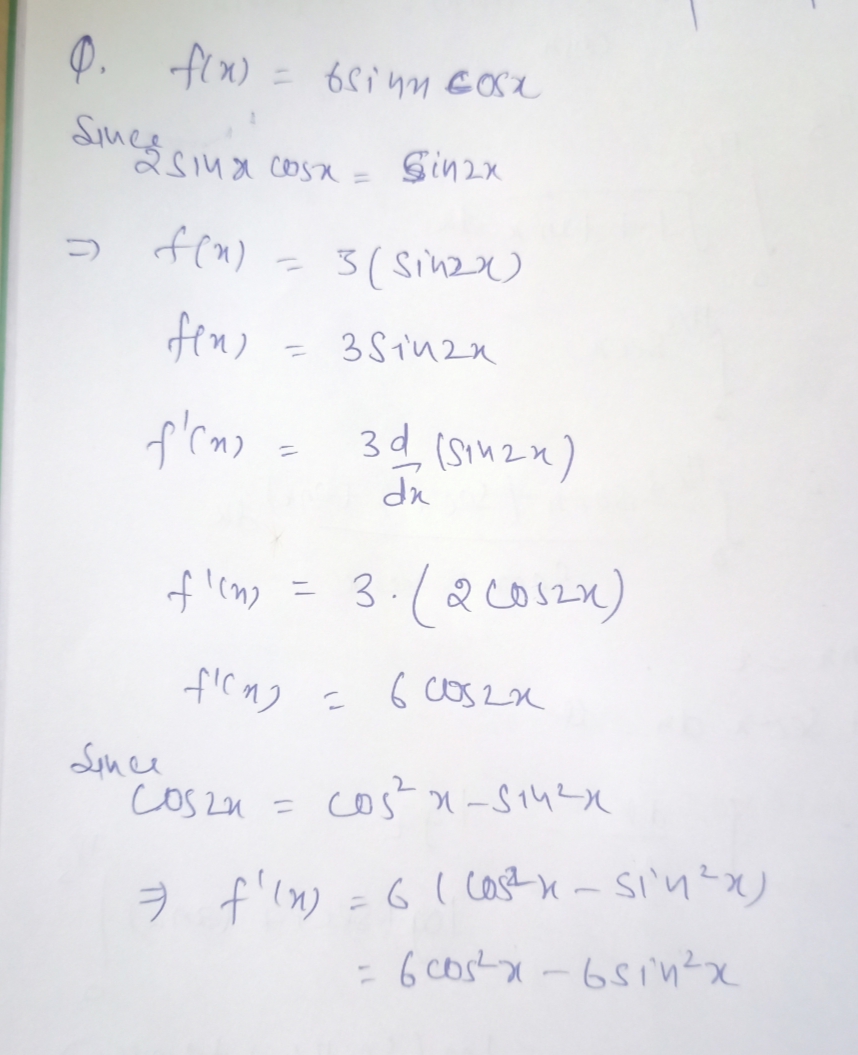 Q. f(x) = 6sinx cosx
Since
2sinx cosx = sin2x
⇒ f(x) = 3(sin2x)
f(x) = 3sin2x
f'(x) = 3 d/dx (sin2x)
f'(x) = 3.(2cos2x)
f'(x) = 6 cos2x
Since
cos2x = cos²x - sin²x
⇒ f'(x) = 6(cos²x - sin²x)
= 6cos²x - 6sin²x